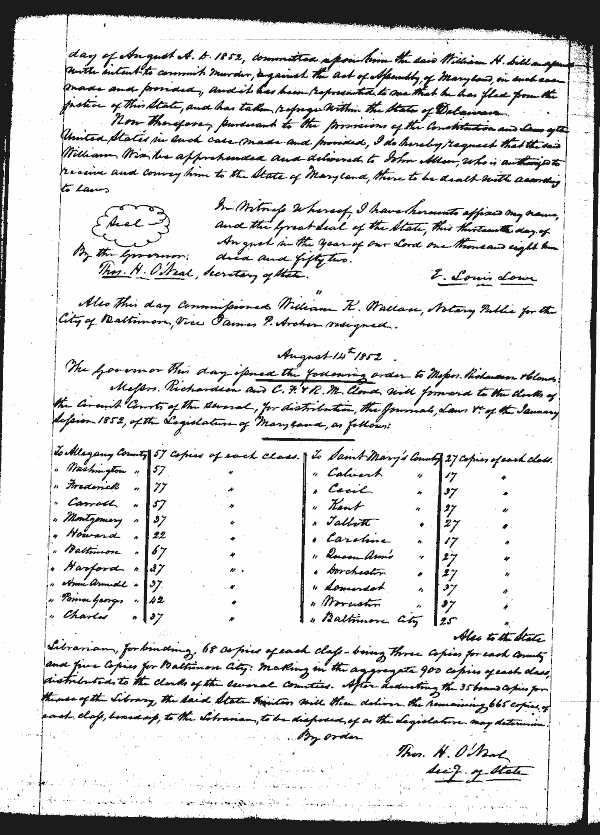 day of August A. D. 1852, committed upon him the said William H. with
with intent to commit Murder, against the act of Assembly of Maryland, in such case
made and provided, and it has been represented to me that he has fled from the
justice of this State, and has taken refuge within the State of Delaware.
Now therefore, pursuant to the provisions of the Constitution and Laws of the
United States in such case made and provided, I do hereby request that the said
William be apprehended and delivered to John Allen, who is authorized to
receive and convey him to the State of Maryland, there to be dealt with according
to law.
Seal
In Witness Whereof, I have hereunto affixed my name,
and the Great Seal of the State, this thirteenth day of
August in the year of our Lord one thousand eight hun
dred and fifty two.
By the Governor:
Thos. H. O'Neal, Secretary of State.
E. Louis Lowe
"
Also this day commissioned William K. Wallace, Notary Public for the
City of Baltimore, vice James P. Archer resigned.
August 14th 1852.
The Governor this day issued the following order to Messrs. Richardson & Cloud:
Messrs. Richardson and C. F. & R. M. Cloud, will forward to the clerks of
the Circuit Courts of the several, for distribution, the Journal, Laws &c of the January
Session 1852, of the Legislature of Maryland, as follows:
To Allegany County 57 copies of each class.
" Washington " 57 "
" Frederick " 77 "
" Carroll " 57 "
" Montgomery " 37 "
" Howard " 22 "
" Baltimore " 67 "
" Harford " 37 "
" Ann Arundel " 37 "
" Prince Georges " 42 "
" Charles " 37 "
To Saint Mary's County 27 copies of each class.
" Calvert " 17 "
" Cecil " 37 "
" Kent " 27 "
" Talbott " 27 "
" Caroline " 17 "
" Queen Ann's " 27 "
" Dorchester " 27 "
" Somerset " 37 "
" Worcester " 37 "
" Baltimore City 25 "
Also to the State
Librarian, for binding, 68 copies of each class - being three copies for each County
and five Copies for Baltimore City: Making in the aggregate 900 copies of each class,
distributed to the clerks of the several counties. After deducting the 35 bound copies for
the use of the Library, the said State Printers will then deliver the remaining 665 copies of
each class, boxed up, to the Librarian, to be disposed of as the Legislature may determine
By order
Thos. H. O'Neal
Secy. of State